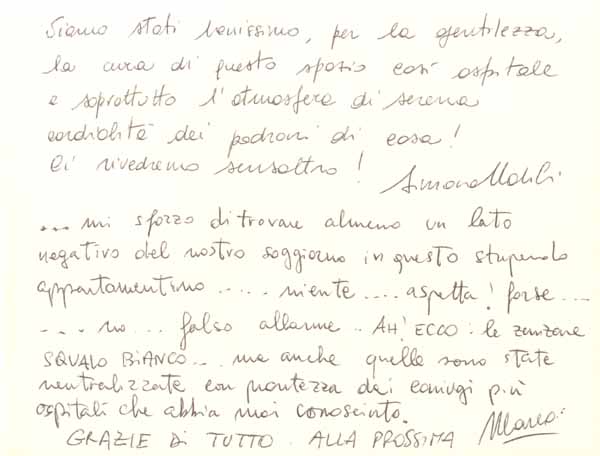 Siamo stati benissimo, per la gentilezza,
la cura di questo spazio così ospitale
e soprattutto l'atmosfera di serena
cordialità dei padroni di casa!
Ci rivedremo senz'altro!
Simona
... mi sforzo di trovare almeno un lato
negativo del nostro soggiorno in questo stupendo
appartamentino ..... niente .... aspetta! forse ....
.... no ... falso allarme .. AH! ECCO: le zanzare
SQUALO BIANCO... ma anche quelle sono state
neutralizzate con prontezza dai coniugi più
ospitali che abbia mai conosciuto.
GRAZIE DI TUTTO. ALLA PROSSIMA Marco